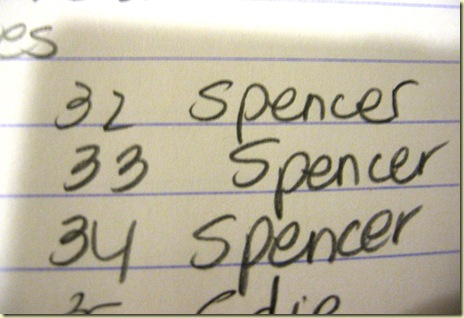 es
32 Spencer
33 Spencer
34 Spencer